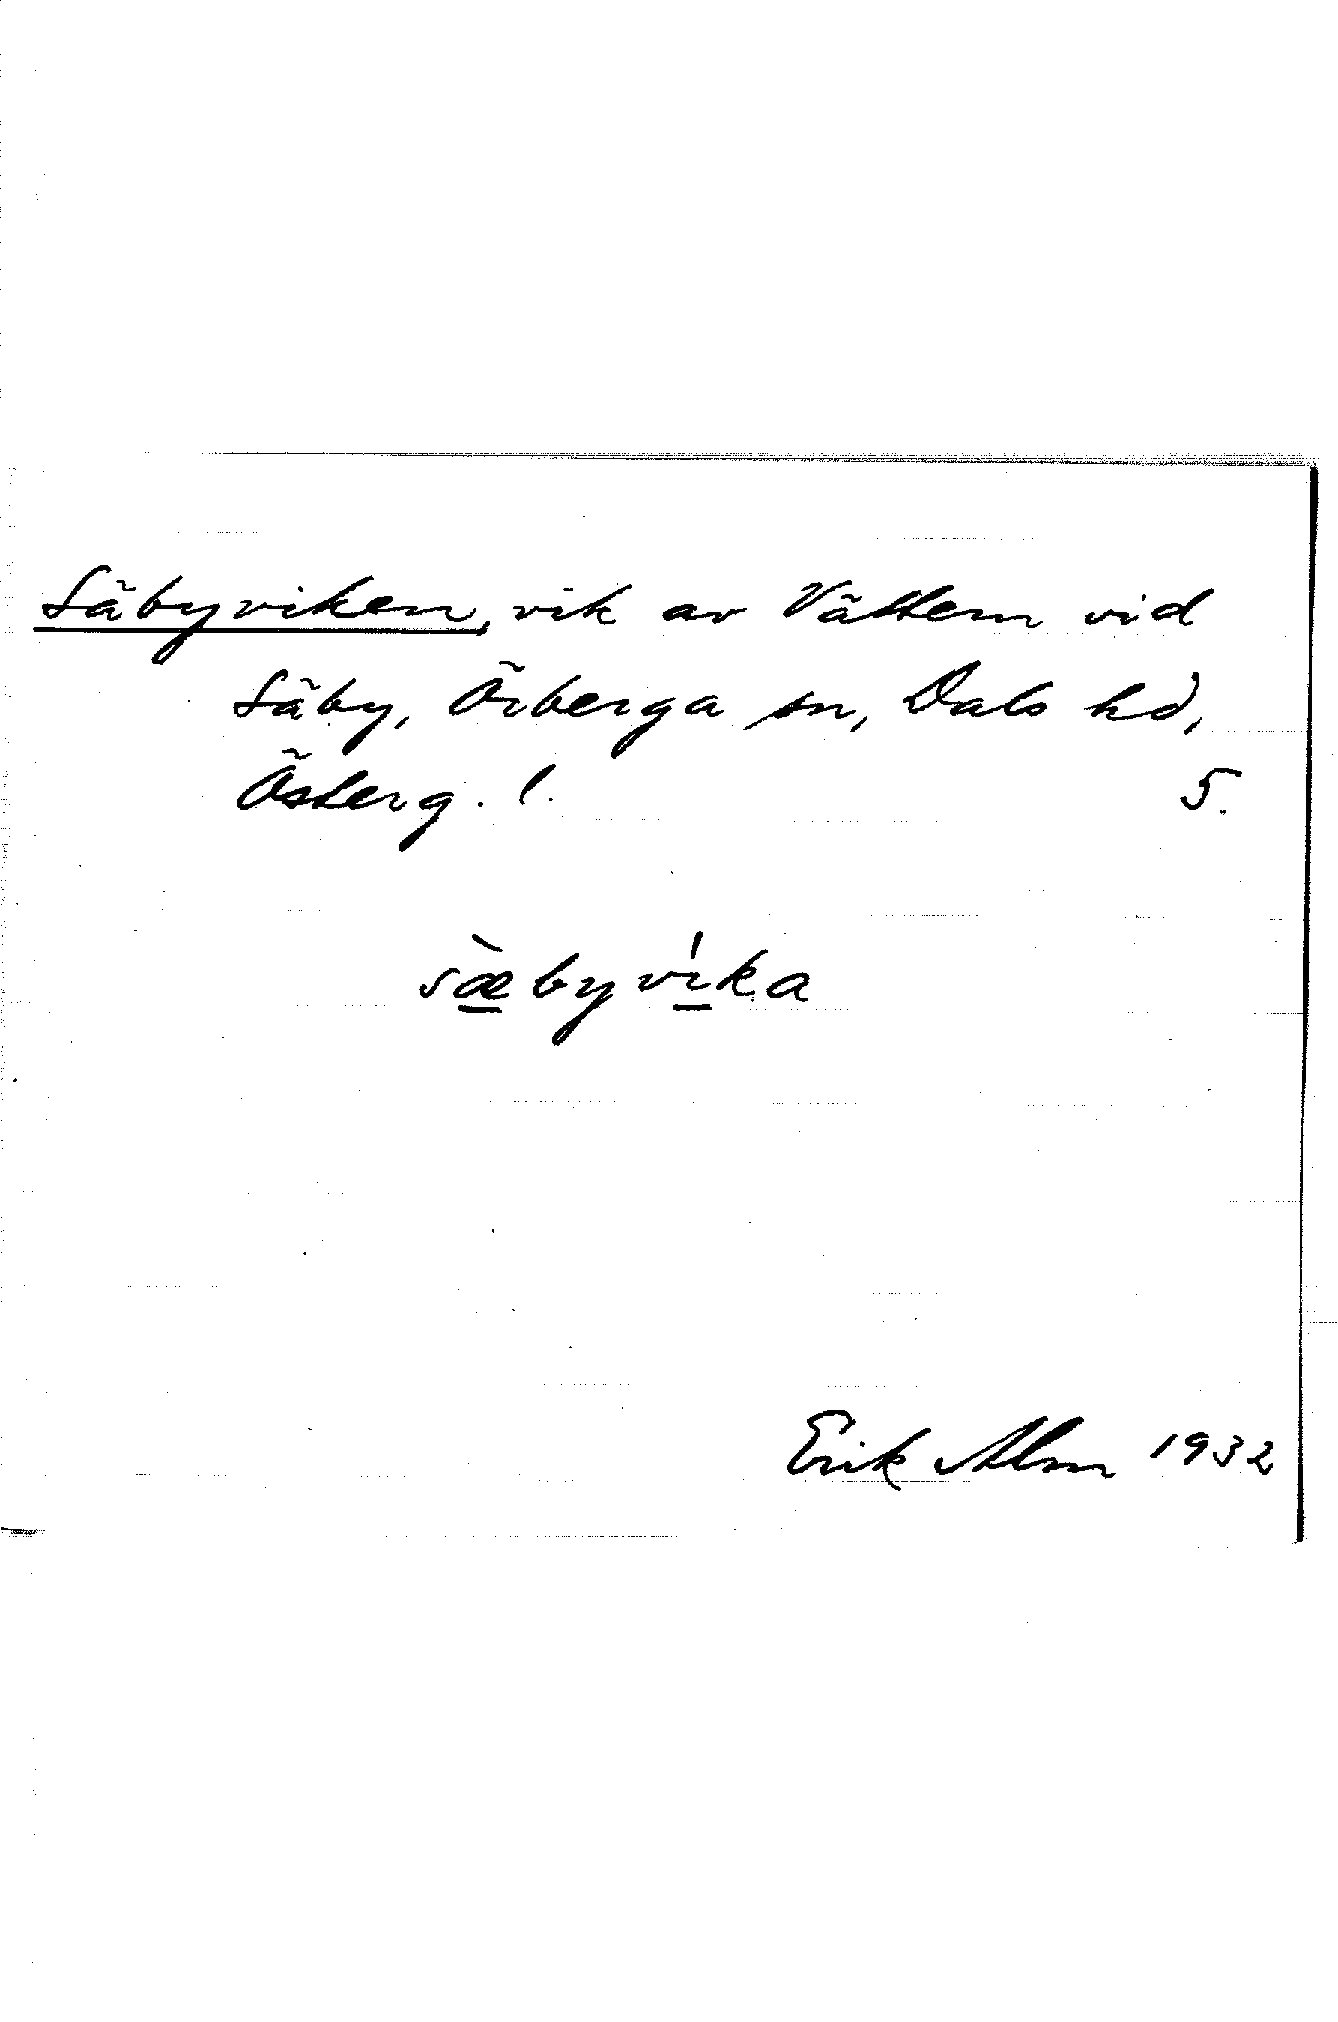 Säbyviken, vik av Vättern vid
Säby, Örberga sn, Dals hd,
Österg. l. 5.
sæ̀byvíka
Erik Alm 1932